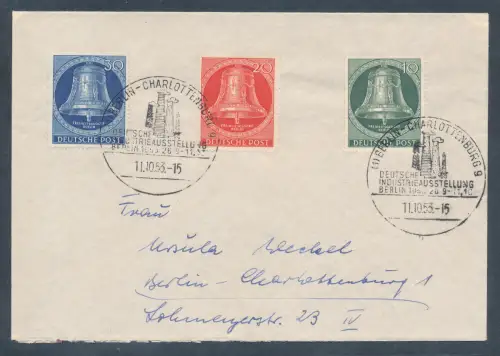 30
20
10
FREIHEITSGLOCKE
BERLIN
DEUTSCHE POST
FREIHEITSGLOCKE
BERLIN
DEUTSCHE POST
FREIHEITSGLOCKE
BERLIN
DEUTSCHE POST
(1) BERLIN-CHARLOTTENBURG 9
DEUTSCHE
INDUSTRIEAUSSTELLUNG
BERLIN 1953 26.9-11.10
11.10.53.-15
(1) BERLIN-CHARLOTTENBURG 9
DEUTSCHE
INDUSTRIEAUSSTELLUNG
BERLIN 1953 26.9-11.10
11.10.53.-15
Frau
Ursula Weckel
Berlin-Charlottenburg 1
Lohmeyerstr. 23 IV